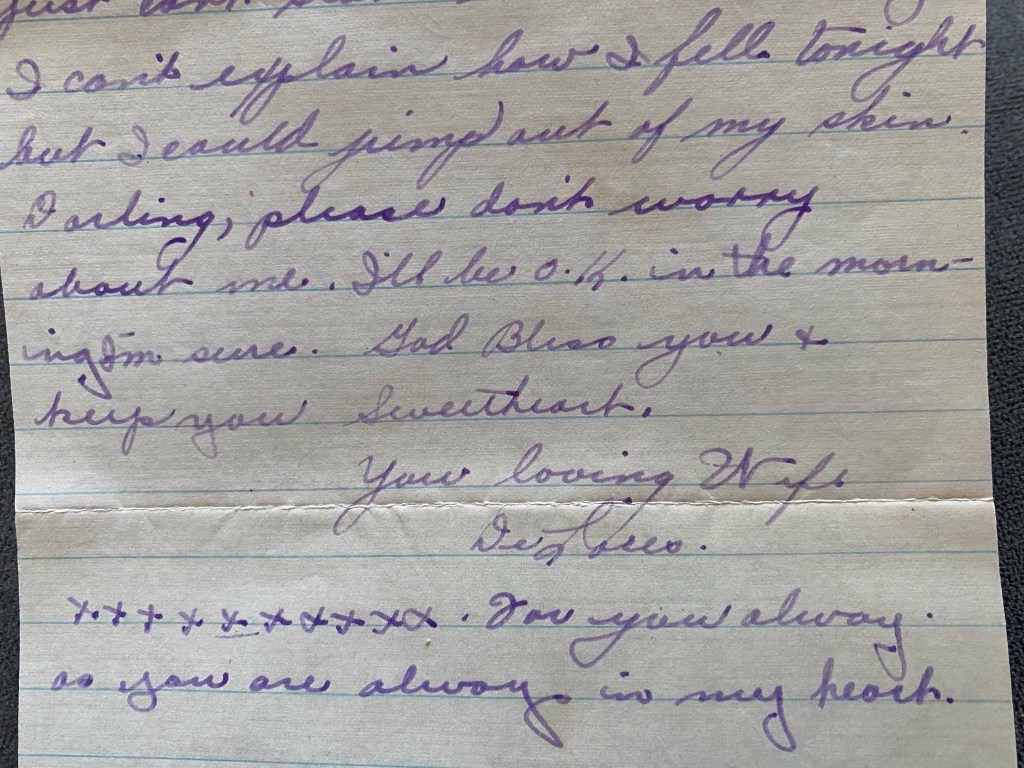 just can't
I can't explain how I fell tonight
but I could jump out of my skin.
Darling, please don't worry
about me. I'll be O.K. in the morn-
ing I'm sure. God Bless you &
keep you Sweetheart.
Your loving Wife
DeLores.
x x x x x x x x x x . For you alway.
as you are always in my heart.